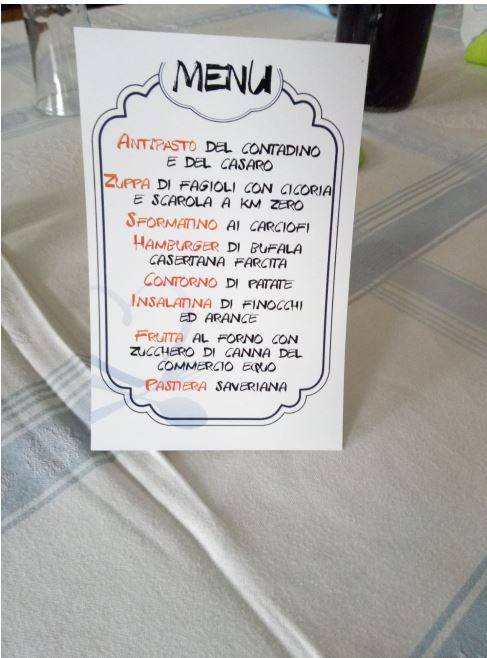 MENU
ANTIPASTO DEL CONTADINO
E DEL CASARO
ZUPPA DI FAGIOLI CON CICORIA
E SCAROLA A KM ZERO
SFORMATINO AI CARCIOFI
HAMBURGER DI BUFALA
CASERTANA FARCITA
CONTORNO DI PATATE
INSALATINA DI FINOCCHI
ED ARANCE
FRUTTA AL FORNO CON
ZUCCHERO DI CANNA DEL
COMMERCIO EQUO
PASTIERA SAVERIANA